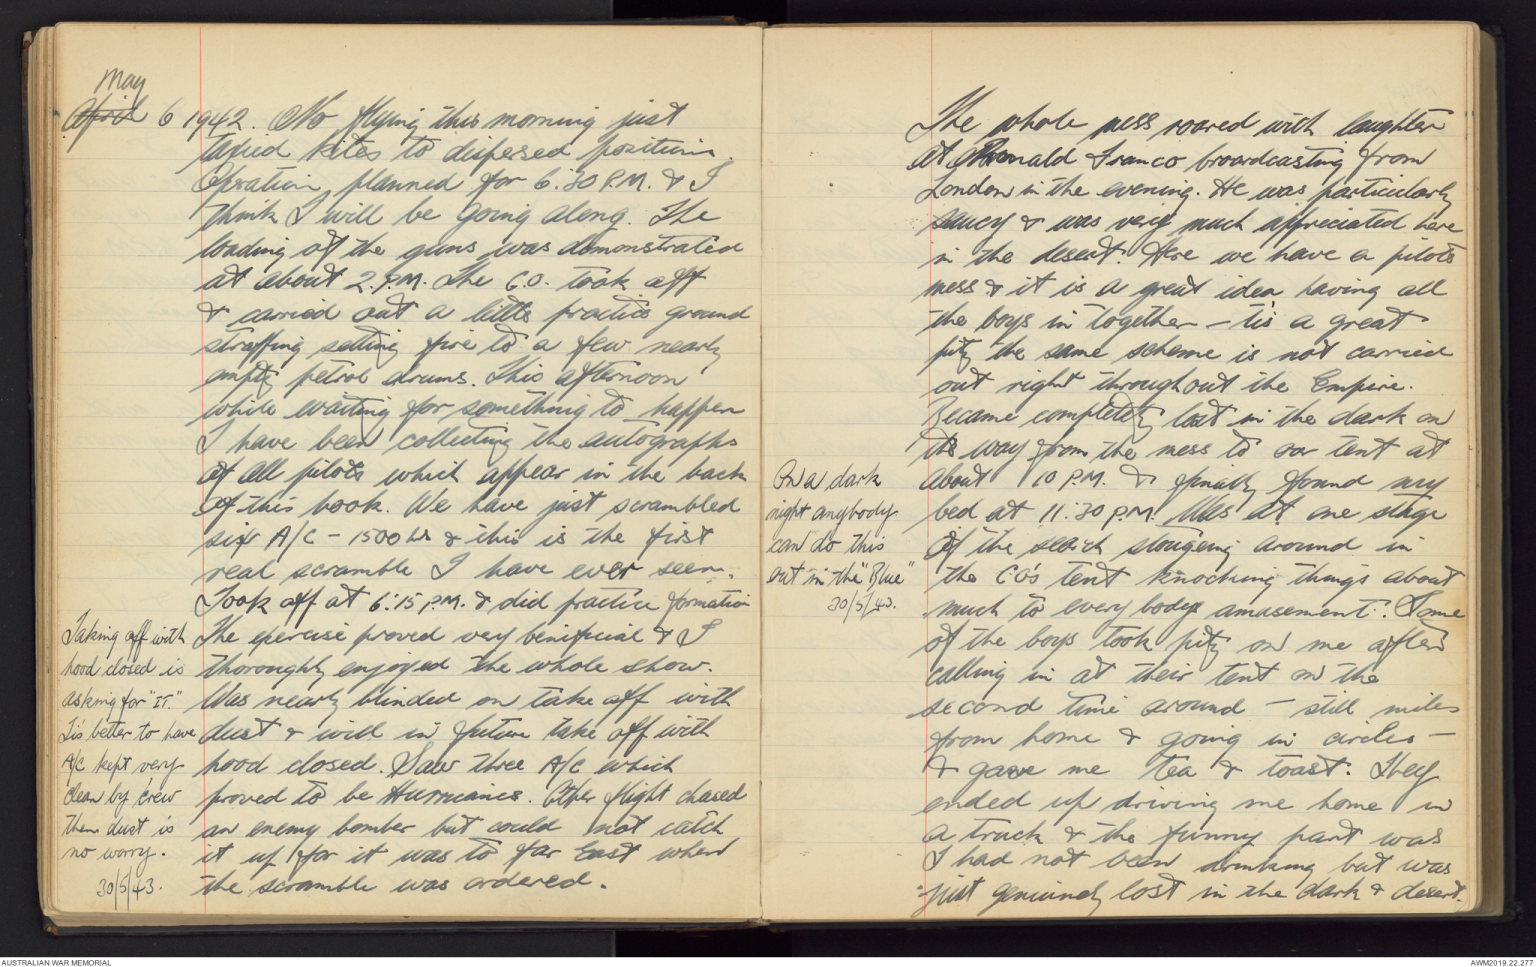 May
April 6 1942. No flying this morning just
taxied kites to dispersed position.
Operation planned for 6.30 P.M. & I
think I will be going along. The
loading of the guns was demonstrated
at about 2. P.M. The C.O. took off
& carried out a little practice ground
straffing setting fire to a few nearly
empty petrol drums. This afternoon
while waiting for something to happen
I have been collecting the autographs
of all pilots which appear in the back
of this book. We have just scrambled
six A/C - 1500 hrs & this is the first
real scramble I have ever seen.
Took off at 6.15 P.M. & did practice formation
The exercise proved very benificial & I
thoroughly enjoyed the whole show.
Was nearly blinded on take off with
dust & will in future take off with
hood closed. Saw three A/C which
proved to be Hurricanes. Other flight chased
an enemy bomber but could not catch
it up for it was to far East when
the scramble was ordered.
Taking off with
hood closed is
asking for "IT."
Tis better to have
A/C kept very
clean by crew
then dust is
no worry.
30/5/43.
The whole mess roared with laughter
at Ronald Franco broardcasting from
London in the evening. He was particularly
saucy & was very much appreciated here
in the desert. Here we have a pilots
mess & it is a great idea having all
the boys in together - tis a great
pity the same scheme is not carried
out right throughout the Empire.
Became completely lost in the dark on
the way from the mess to our tent at
about 10 P.M. & finally found my
bed at 11.30 P.M. Was at one stage
of the search stouging around in
the CO's tent knocking things about
much to every bodys amusement. Some
of the boys took pity on me after
calling in at their tent on the
second time around - still miles
from home & going in circles -
& gave me tea & toast. They
ended up driving me home in
a truck & the funny part was
I had not been drinking but was
just genuinely lost in the dark & desert.
On a dark
night anybody
can do this
out in the "Blue"
30/5/43.
AUSTRALIAN WAR MEMORIAL
AWM2019.22.277